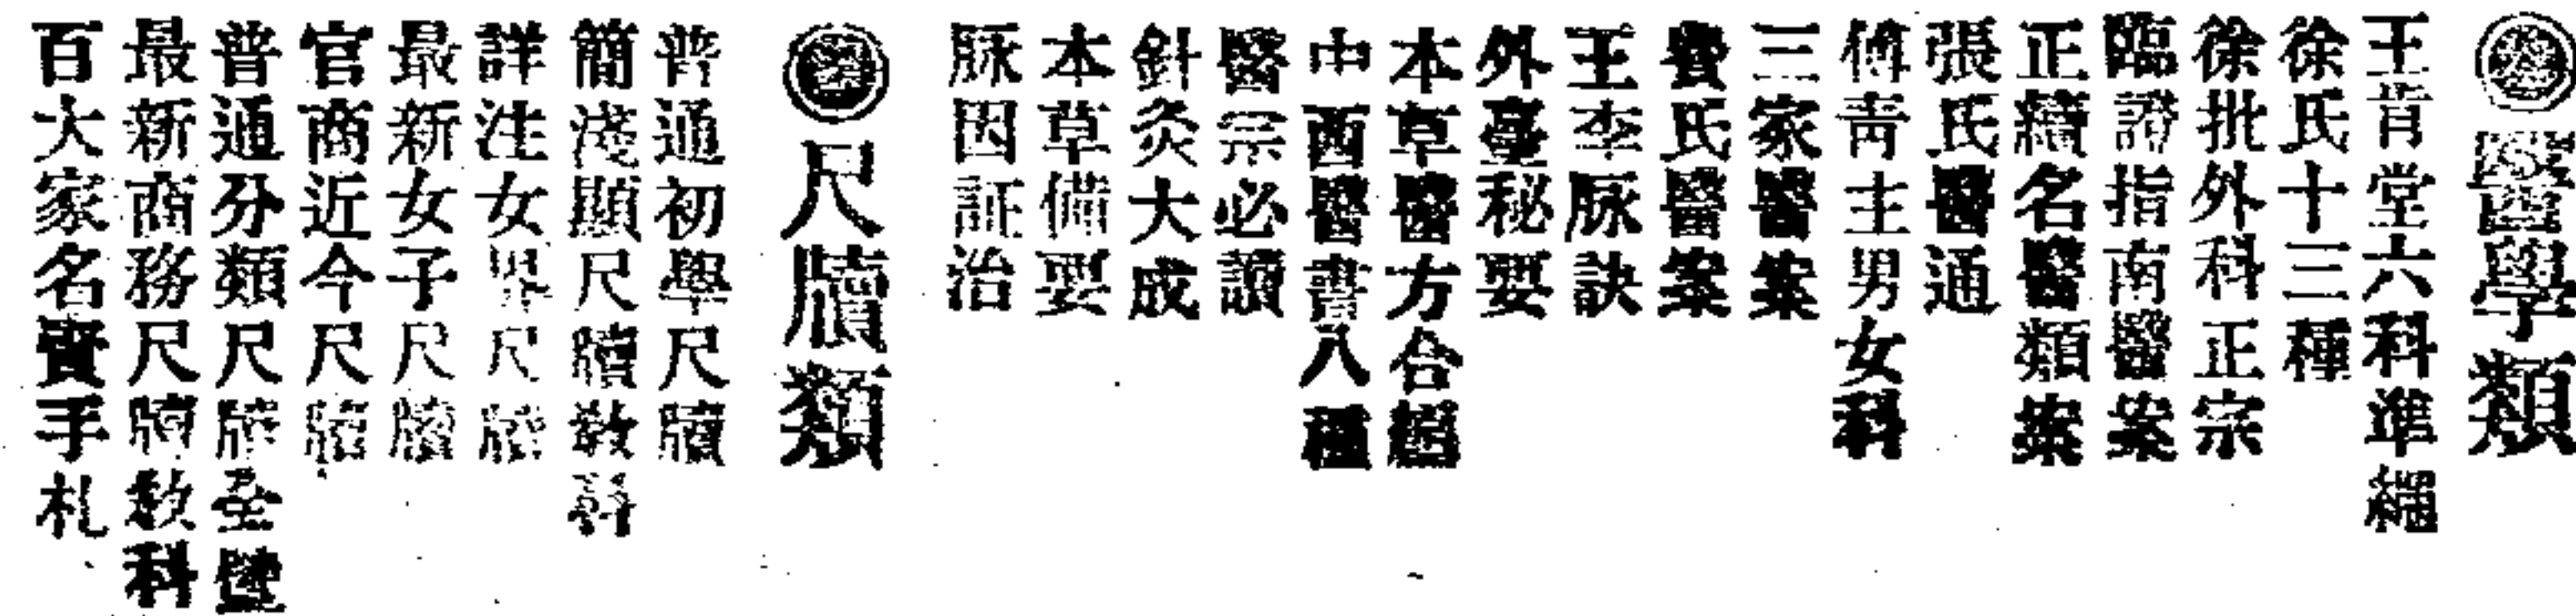 醫學類
王肯堂六科準繩
徐氏十三種
徐批外科正宗
臨證指南醫案
正續名醫類案
張氏醫通
傅青主男女科
三家醫案
費氏醫案
王李脉訣
外臺秘要
本草醫方合編
中西醫書八種
醫宗必讀
針灸大成
本草備要
脉因証治
尺牘類
普通初學尺牘
簡淺顯尺牘教科
詳注女界尺牘
最新女子尺牘
官商近今尺牘
普通分類尺牘全璧
最新商務尺牘教科
百大家名賢手札